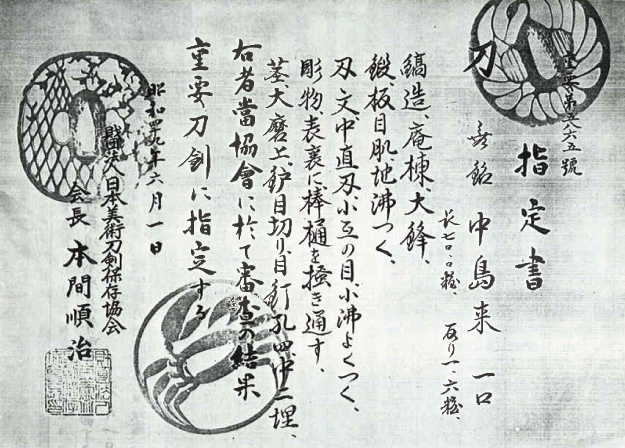 重要第五六五號
指定書
刀 無銘 中島来 一口
長七〇・〇糎、反り一・六糎、
鎬造、庵棟、大鋒、
鍛、板目肌、地沸つく、
刃文、中直刃、小互の目、小沸よくつく、
彫物表裏に棒樋を掻き通す、
茎、大磨上、鑢目切り、目釘孔四、中二埋、
右者當協會に於て審査の結果
重要刀剣に指定する
昭和四九年六月一日
財団法人日本美術刀剣保存協会
会長 本間順治